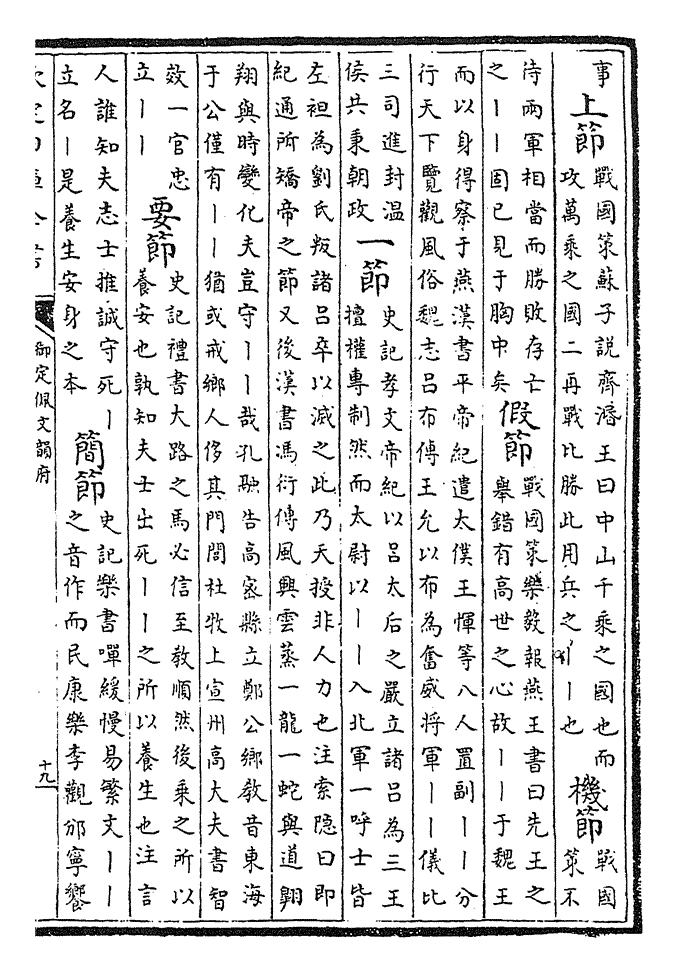 事
上節
戰國策蘇子說齊湣王曰中山千乘之國也而
攻萬乘之國二再戰比勝此用兵之丨丨也
機節
戰國
策不
待兩軍相當而勝敗存亡
之丨丨固已見于胸中矣
假節
戰國策樂毅報燕王書曰先王之
舉錯有高世之心故丨丨于魏王
而以身得察于燕漢書平帝紀遣太僕王惲等八人置副丨丨分
行天下覽觀風俗魏志呂布傳王允以布為奮威將軍丨丨儀比
三司進封温
侯共秉朝政
一節
史記孝文帝紀以呂太后之嚴立諸呂為三王
擅權專制然而太尉以丨丨入北軍一呼士皆
左袒為劉氏叛諸呂卒以滅之此乃天授非人力也注索隱曰即
紀通所矯帝之節又後漢書馮衍傳風興雲蒸一龍一蛇與道翺
翔與時變化夫豈守丨丨哉孔融告高密縣立鄭公鄉教昔東海
于公僅有丨丨猶或戒鄉人侈其門閭杜牧上宣州高大夫書智
效一官忠
立丨丨
要節
史記禮書大路之馬必信至教順然後乘之所以
養安也孰知夫士出死丨丨之所以養生也注言
人誰知夫志士推誠守死丨
立名丨是養生安身之本
簡節
史記樂書嘽緩慢易繁文丨丨
之音作而民康樂李觀邠寧饗
欽定四庫全書
御定佩文韻府
十九